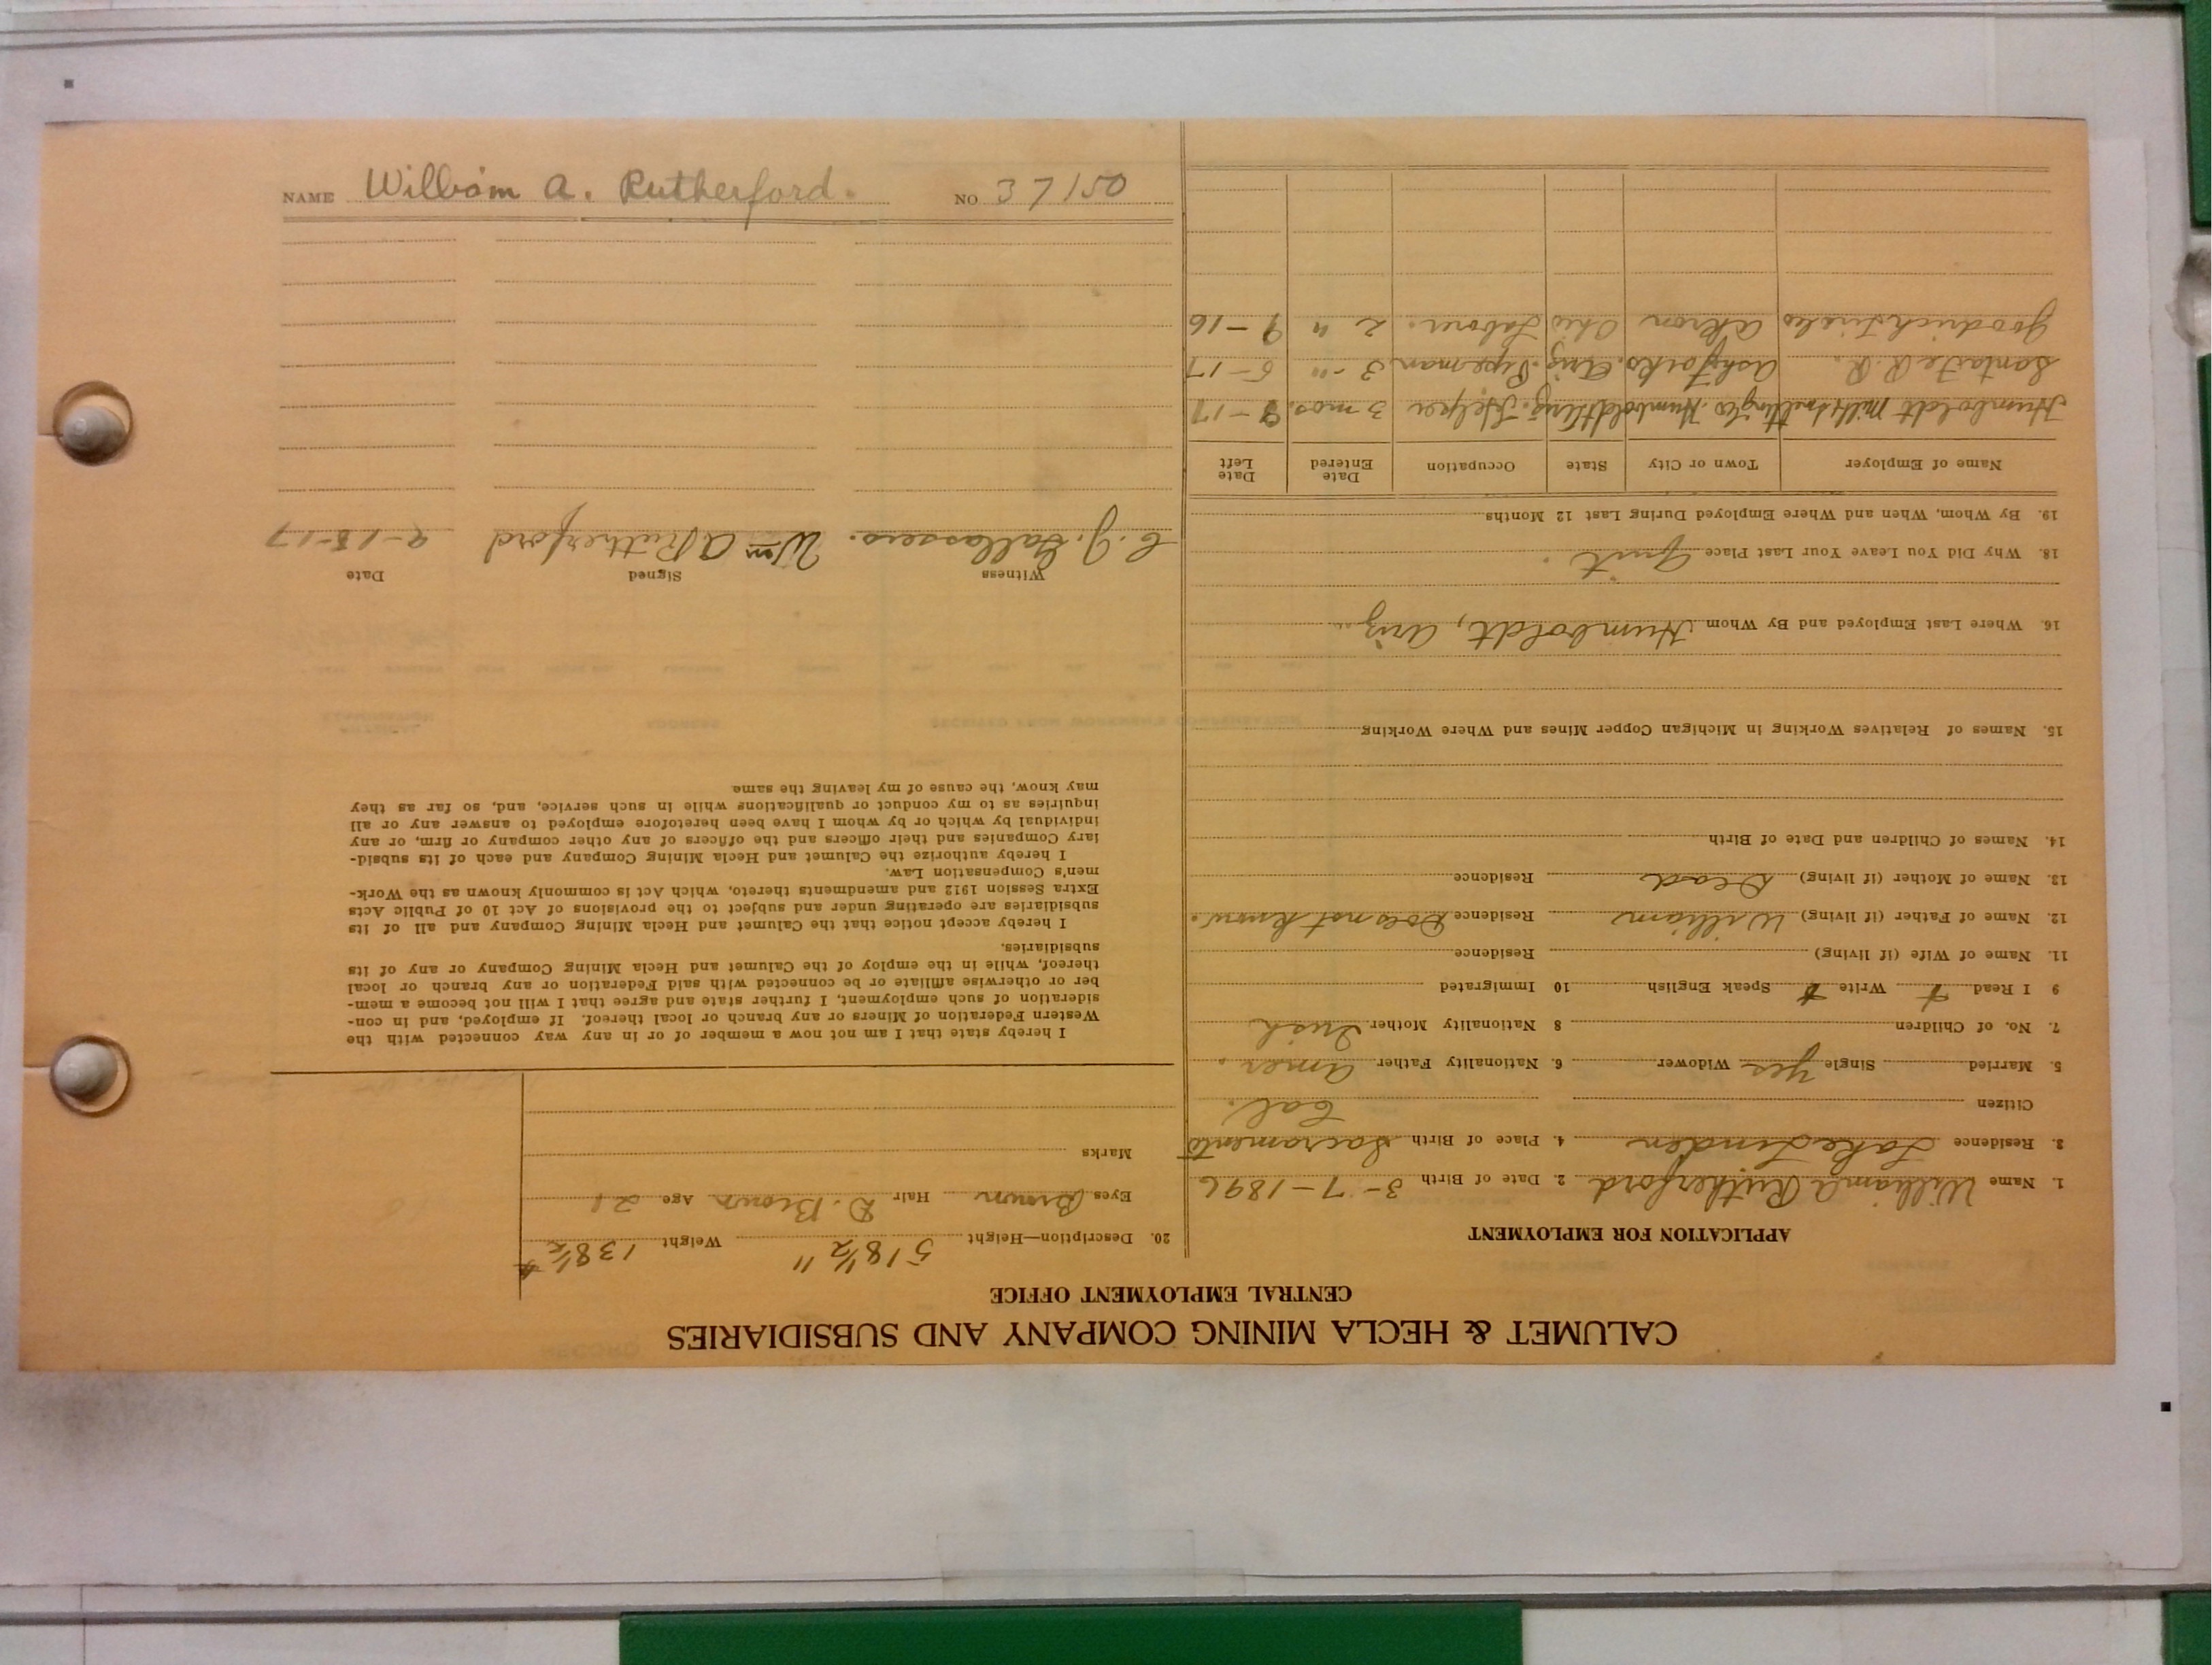 CALUMET & HECLA MINING COMPANY AND SUBSIDIARIES
CENTRAL EMPLOYMENT OFFICE
APPLICATION FOR EMPLOYMENT
1. Name William A Rutherford 2. Date of Birth 3-7-1896
3. Residence Lake Linden 4. Place of Birth Sacramento
Citizen Cal.
5. Married Single Yes Widower 6. Nationality Father Amer.
7. No. of Children 8 Nationality Mother Irish
9 I Read Write Speak English 10 Immigrated
11. Name of Wife (if living) Residence
12. Name of Father (if living) William Residence Does not know.
13. Name of Mother (if living) Dead Residence
14. Names of Children and Date of Birth
15. Names of Relatives Working in Michigan Copper Mines and Where Working
16. Where Last Employed and By Whom Humboldt, Ariz.
18. Why Did You Leave Your Last Place Quit.
19. By Whom, When and Where Employed During Last 12 Months
Name of Employer Town or City State Occupation Date Entered Date Left
Humboldt Mill & Smelting Co. Humboldt Ariz. Helper 3 mos. 9-17
Santa Fe R.R. Ash Forks. Ariz. Pipeman 3 - " 5-17
Goodrich Tire Co Akron Ohio Laborer. 2 " 9-16
20. Description—Height 5 1 8 1/2 " Weight 138 1/2 #
Eyes Brown Hair D. Brown Age 21
Marks
I hereby state that I am not now a member of or in any way connected with the
Western Federation of Miners or any branch or local thereof. If employed, and in con-
sideration of such employment, I further state and agree that I will not become a mem-
ber or otherwise affiliate or be connected with said Federation or any branch or local
thereof, while in the employ of the Calumet and Hecla Mining Company or any of its
subsidiaries.
I hereby accept notice that the Calumet and Hecla Mining Company and all of its
subsidiaries are operating under and subject to the provisions of Act 10 of Public Acts
Extra Session 1912 and amendments thereto, which Act is commonly known as the Work-
men's Compensation Law.
I hereby authorize the Calumet and Hecla Mining Company and each of its subsid-
iary Companies and their officers and the officers of any other company or firm, or any
individual by which or by whom I have been heretofore employed to answer any or all
inquiries as to my conduct or qualifications while in such service, and, so far as they
may know, the cause of my leaving the same
Witness Signed Date
C. J. Wm A Rutherford 9-18-17
NAME William A. Rutherford. NO 37150